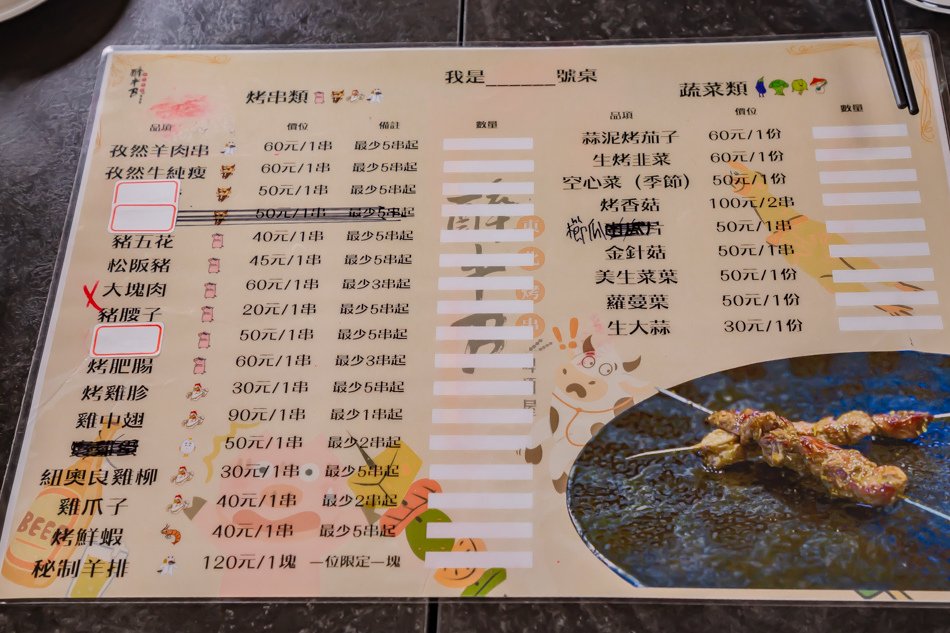 我是______號桌
烤串類
品項 價位 備註 數量
孜然羊肉串 60元/1串 最少5串起
孜然牛純瘦 60元/1串 最少5串起
50元/1串 最少5串起
50元/1串 最少5串起
豬五花 40元/1串 最少5串起
松阪豬 45元/1串 最少5串起
大塊肉 60元/1串 最少3串起
豬腰子 20元/1串 最少5串起
50元/1串 最少5串起
烤肥腸 60元/1串 最少3串起
烤雞胗 30元/1串 最少5串起
雞中翅 90元/1串 最少1串起
50元/1串 最少2串起
紐奧良雞柳 30元/1串 最少5串起
雞爪子 40元/1串 最少2串起
烤鮮蝦 40元/1串 最少5串起
秘制羊排 120元/1塊 一位限定一塊
BEER
蔬菜類
品項 價位 數量
蒜泥烤茄子 60元/1份
生烤韭菜 60元/1份
空心菜（季節） 50元/1份
烤香菇 100元/2串
片 50元/1串
金針菇 50元/1串
美生菜葉 50元/1份
蘿蔓葉 50元/1份
生大蒜 30元/1份